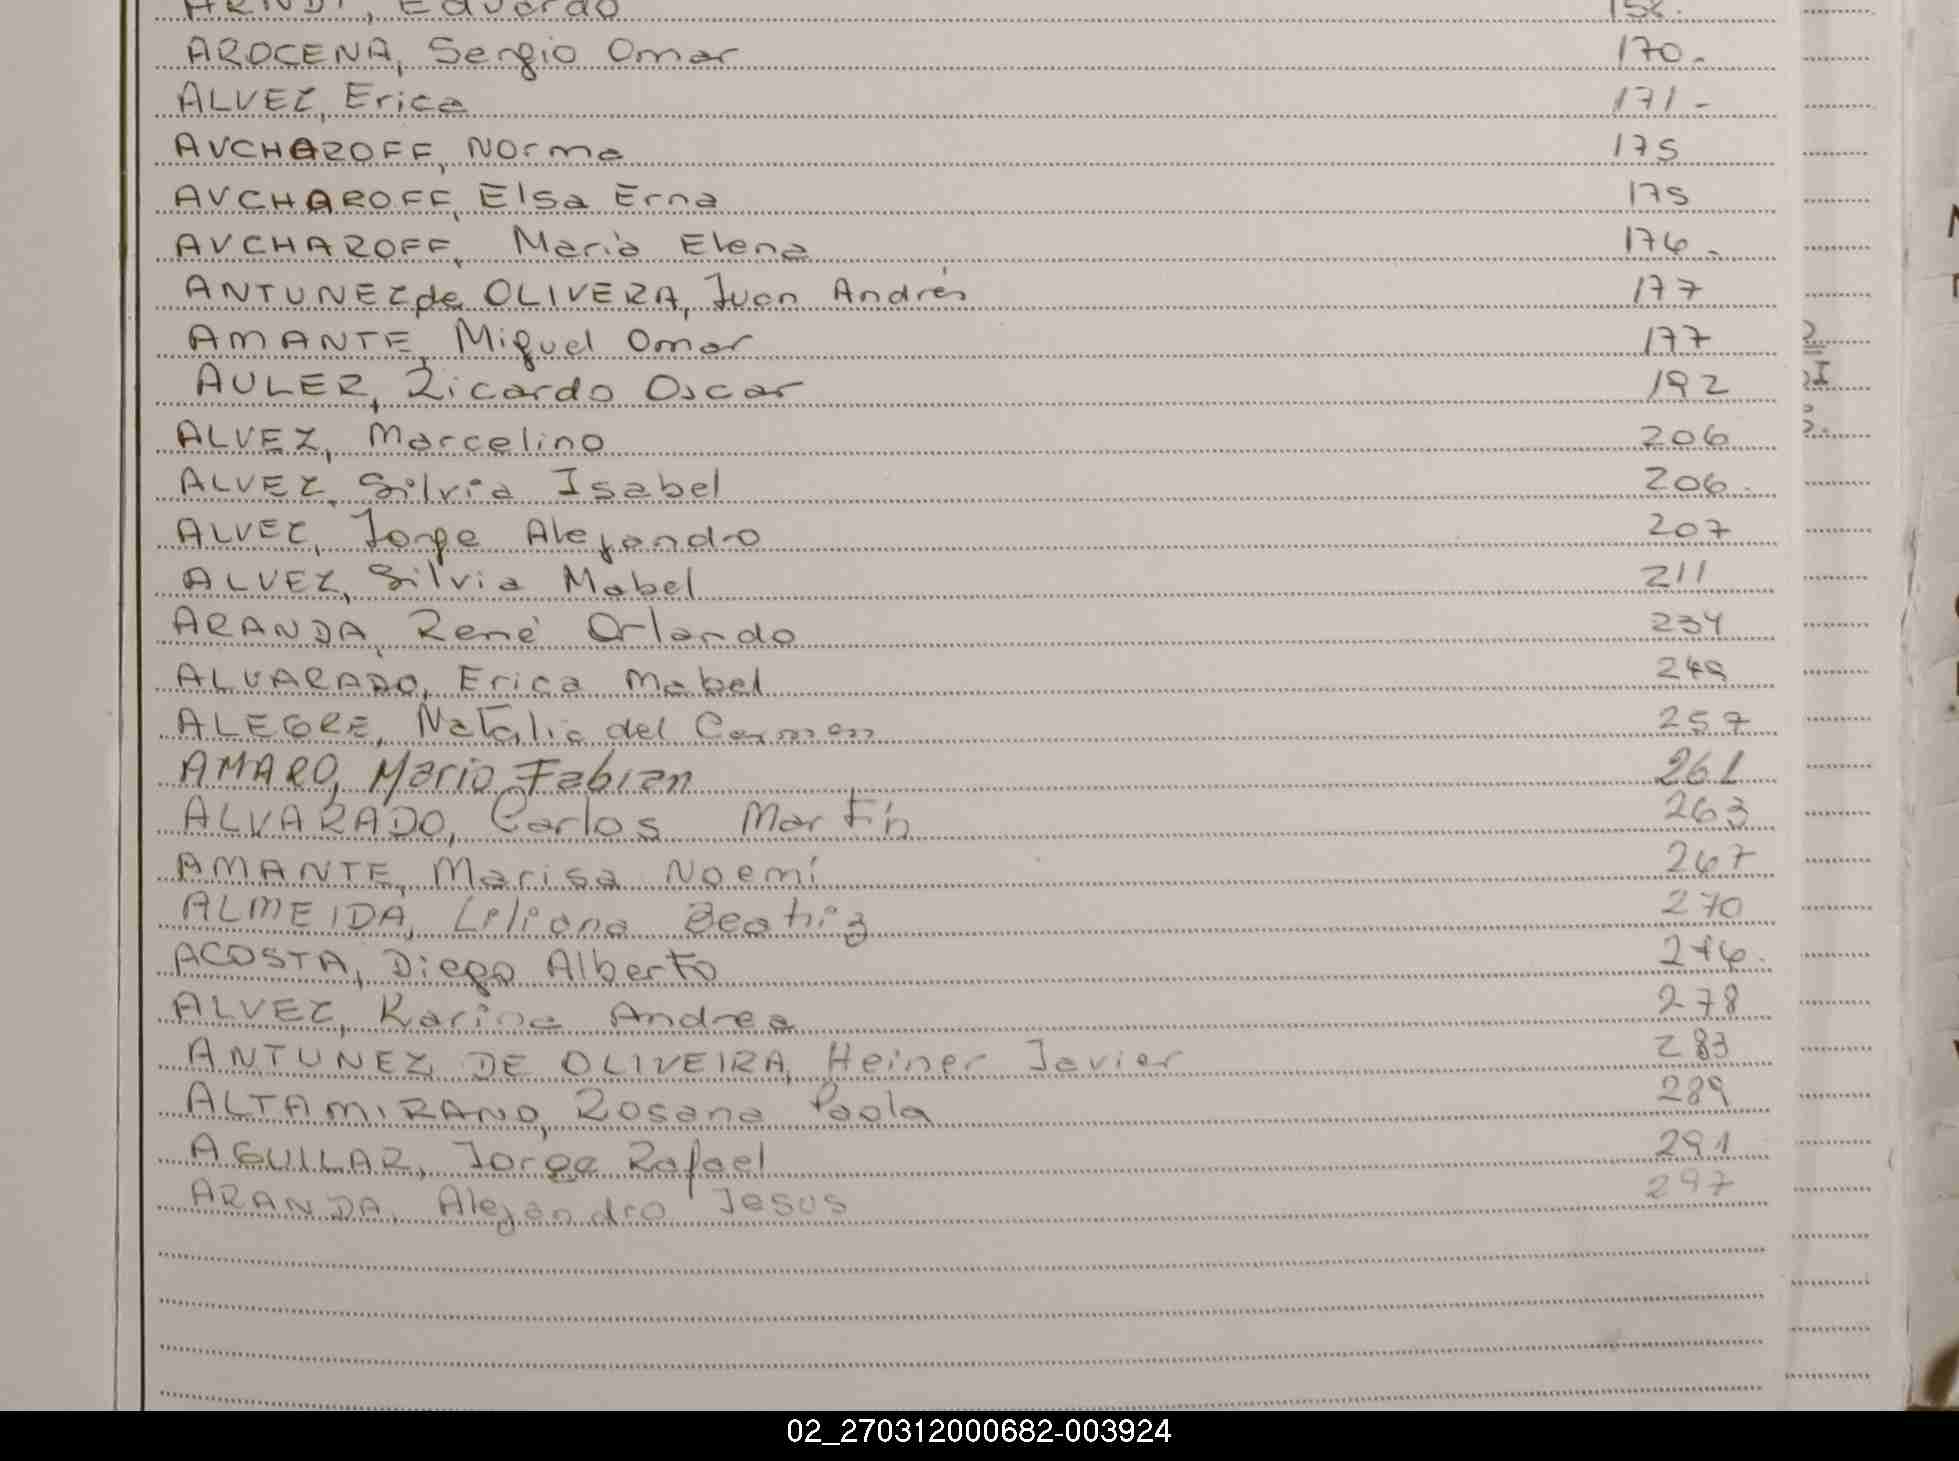 ARNDT, Eduardo 158.
AROCENA, Sergio Omar 170.-
ALVEZ, Erica 171.-
AVCHAROFF, Norma 175
AVCHAROFF, Elsa Erna 175
AVCHAROFF, María Elena 176.-
ANTUNEZ de OLIVERA, Juan Andrés 177
AMANTE, Miguel Omar 177
AULER, Ricardo Oscar 192
ALVEZ, Marcelino 206
ALVEZ, Silvia Isabel 206.
ALVEZ, Jorge Alejandro 207
ALVEZ, Silvia Mabel 211
ARANDA, René Orlando 234
ALVARADO, Erica Mabel 249
ALEGRE, Natalia del Carmen 257
AMARO, Mario Fabian 261
ALVARADO, Carlos Martín 263
AMANTE, Marisa Noemí 267
ALMEIDA, Liliana Beatriz 270
ACOSTA, Diego Alberto 276.
ALVEZ, Karina Andrea 278
ANTUNEZ DE OLIVEIRA, Heiner Javier 283
ALTAMIRANO, Rosana Paola 289
AGUILAR, Jorge Rafael 291
ARANDA, Alejandro Jesus 297
02_270312000682-003924